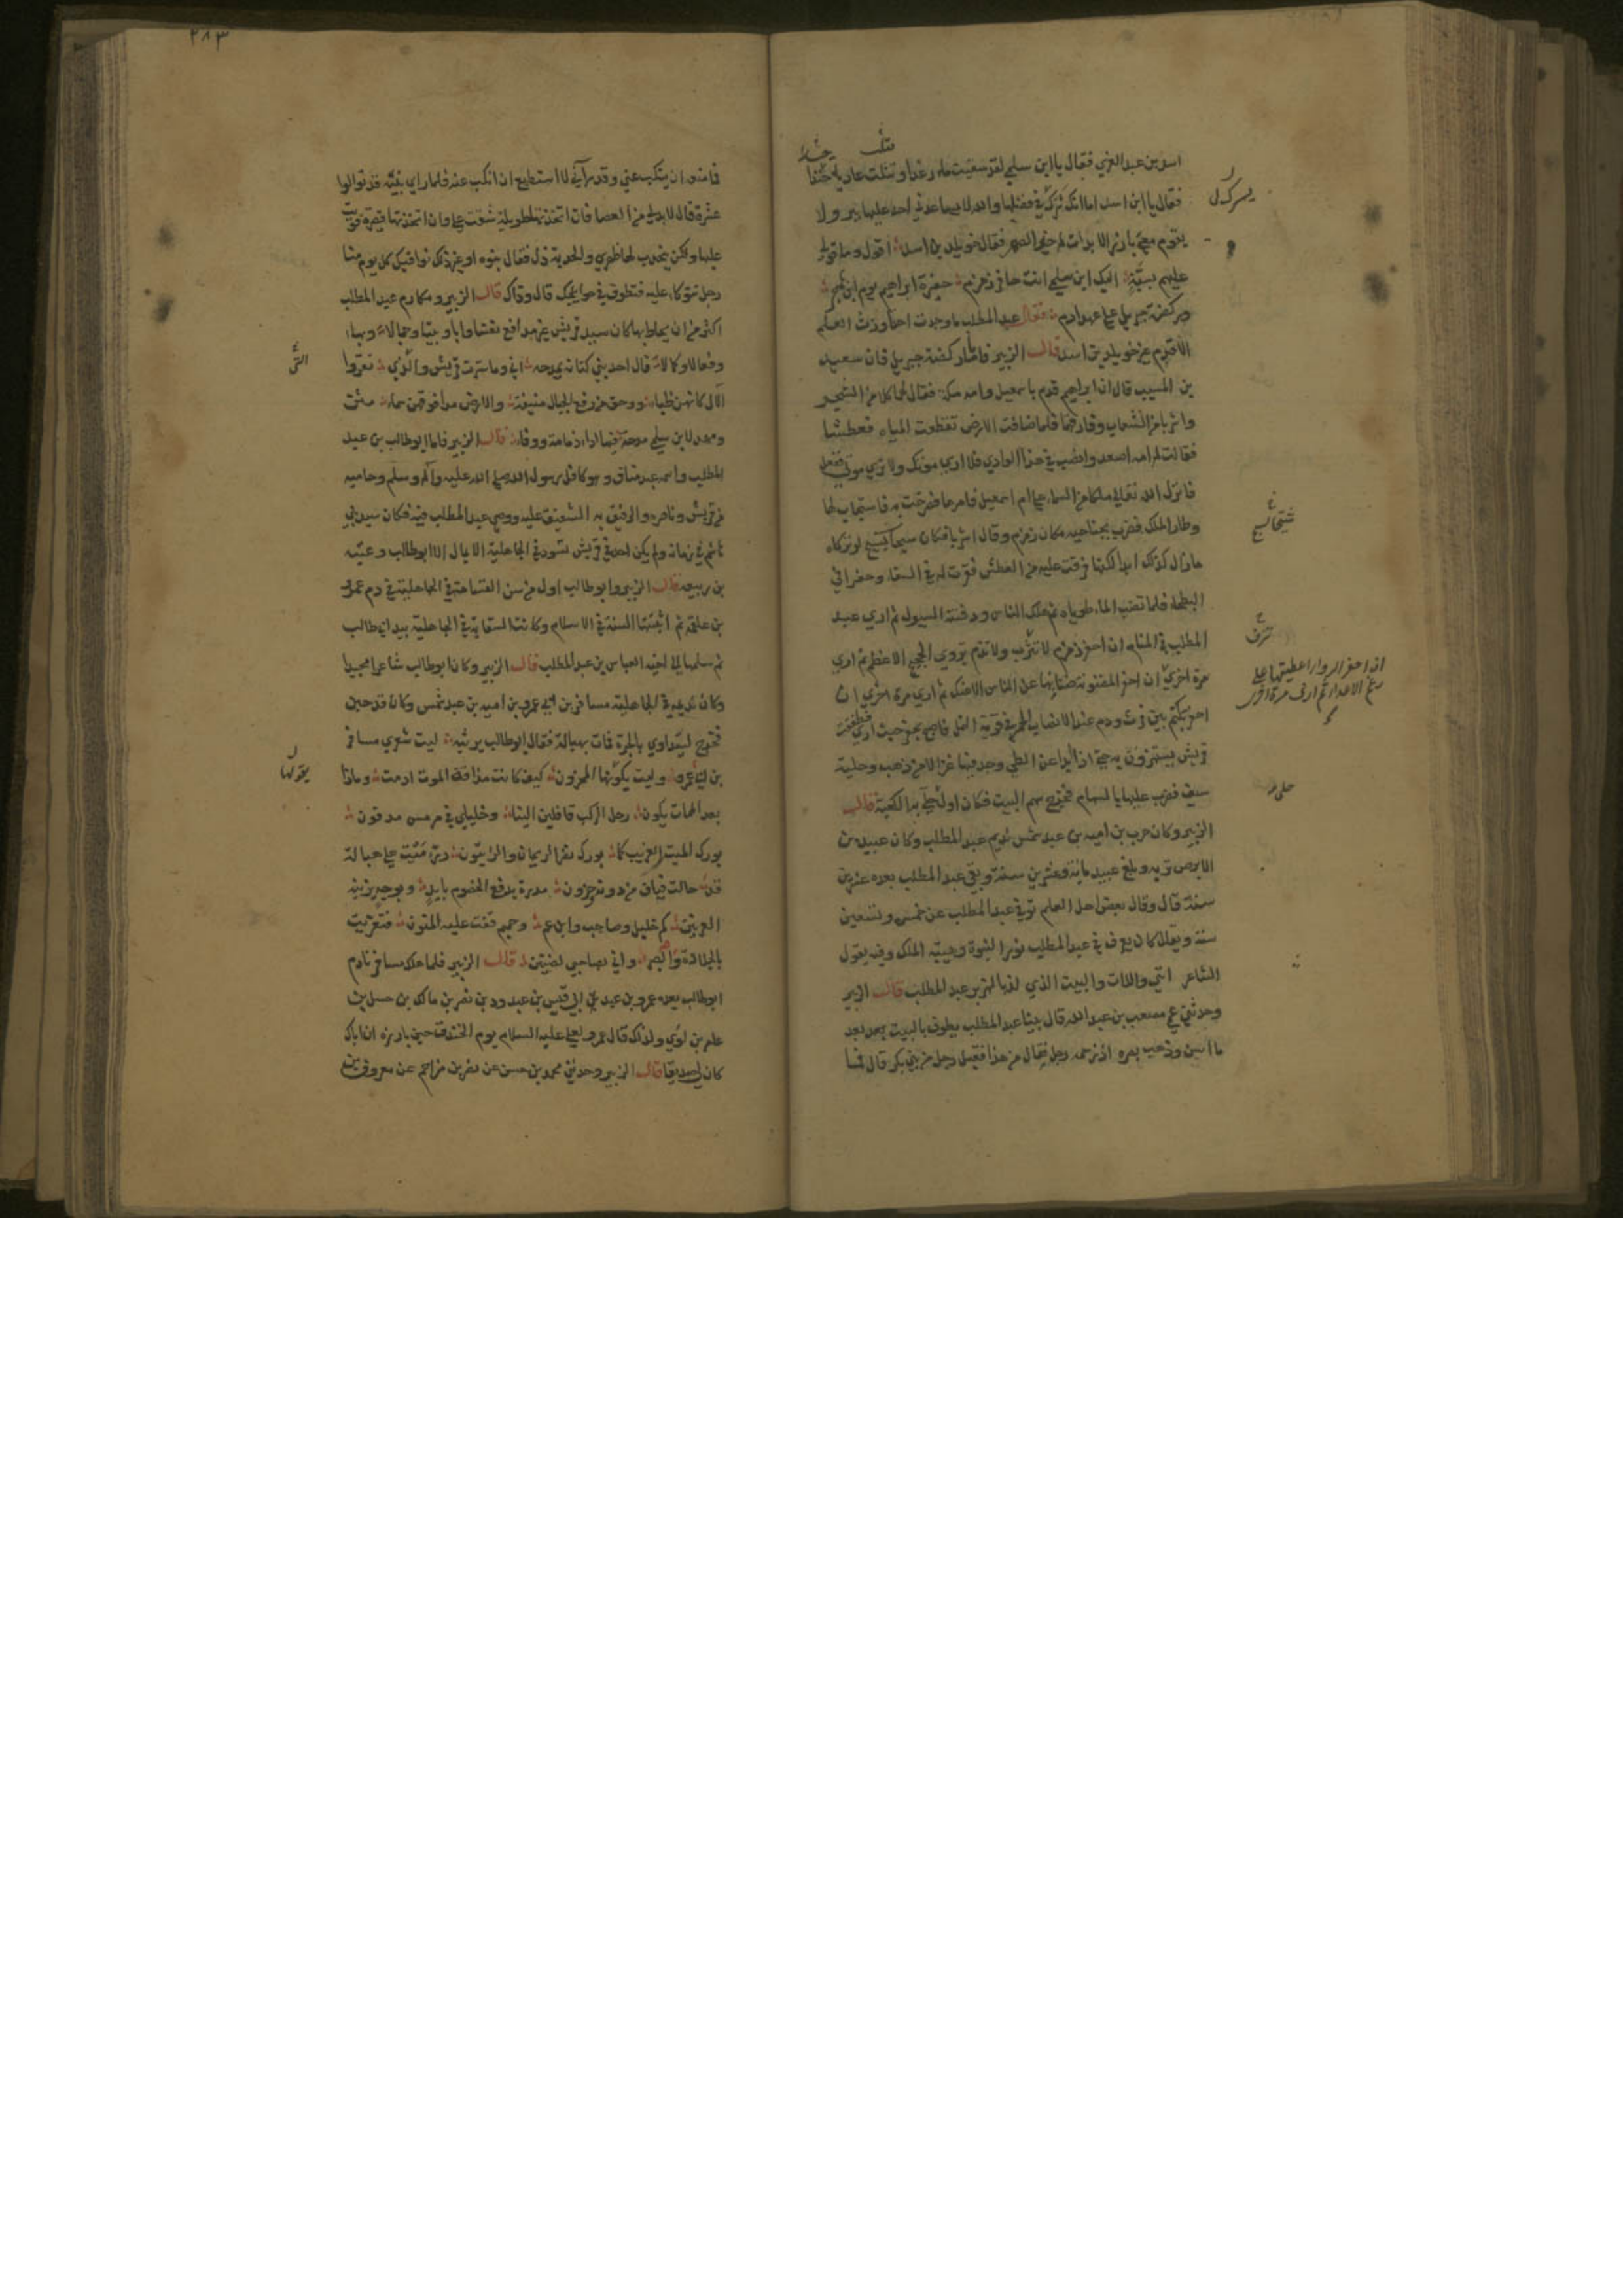 اسد بن عبد العزي فقال يا ابن سلمي لقد سقيت ماء رغدا ونثلت عادية حتدا
فقال يا ابن اسد اما انك تشرك في فضلها والله لا يساعدني احد عليها ببر ولا
يقوم معي بارزا الا بذلت له خير الصهر فقال خويلد بن اسد اقول وما قولي
عليهم بسبة اليك ابن سلمي انت حافر زمزم حفيرة ابراهيم يوم ابن هاجر
وركضة جبريل علي عهد ادم فقال عبد المطلب ما وجدت احدا ورث العلم
الاقدم غير خويلد بن اسد قال الزبير فاما ركضة جبريل فان سعيد
بن المسيب قال ان ابراهيم قدم باسمعيل وامه مكة فقال لهما كلا من الشجر
واشربا من الشعاب وفارقهما فلما ضاقت الارض تقطعت المياه فعطشا
فقالت له امه اصعد وانصب في هذا الوادي فلا اري موتك ولا تري موتي ففعل
فانزل الله تعالي ملكا من السماء علي ام اسمعيل فامرها فصرخت به فاستجاب لها
وطار الملك فضرب بجناحيه مكان زمزم وقال اشربا فكان سيحا يسيح لو تركاه
مازال كذلك ابدا لكنها فرقت عليه من العطش فقرت له في السقاء وحفر في
البطحاء فلما نضب الماء طوياه ثم هلك الناس ودفنته السيول ثم اري عبد
المطلب في المنام ان احفر زمزم لا تنزف ولا تذم تروي الحجيج الاعظم ثم اري
مرة اخري ان احفر المضنونة ضننا بها عن الناس الا عنك ثم اري مرة اخري ان
احفر تكتم بين فرث ودم عند الانصاب الحمر في قرية النمل فاصبح يحفر حيث اري فطفقت
قريش يستهزؤن به حتي اذا ابدا عن الطي وجد فيها غزالا من ذهب وحلية
سيف فضرب عليها بالسهام فخرج سهم البيت فكان اول حلي بدا الكعبة قال
الزبير وكان حرب بن اميه بن عبد شمس نديم عبد المطلب وكان عبيد بن
الابرص تربه وبلغ عبيد مائة وعشرين سنة وبقي عبد المطلب بعده عشرين
سنة قال وقال بعض اهل العلم توفي عبد المطلب عن خمس وتسعين
سنة ويقال كان يعرف في عبد المطلب نور النبوة وهيبة الملك وفيه يقول
الشاعر انني واللات والبيت الذي لز بالهبرز عبد المطلب قال الزبير
وحدثني عمي مصعب بن عبد الله قال بينا عبد المطلب يطوف بالبيت بعد
ما اسن وذهب بصره اذ زحمه رجل فقال من هذا فقيل رجل من بني بكر قال فما
يسرك ل
تنزف
ان احفر الرواء اعطيتها علي
رغم الاعداء ثم اري مرة اخري
حلي
٢٨٣
فما منعه ان ينكب عني وقد رآني لا استطيع ان انكب عنه فلما راي بنيه قد توالوا
عشرة قال لا بد لي من العصا فان اتخذتها طويلة شقت علي وان اتخذتها قصيرة قويت
عليها ولكن يحدب لها ظهري والحدبة ذل فقال بنوه او غير ذلك نوافيك كل يوم منا
رجل تتوكأ عليه فتطوف في حوايجك قال وذاك قال الزبير ومكارم عبد المطلب
اكثر من ان يحاط بها كان سيد قريش غير مدافع نفسا وابا وبيتا وجمالا وبهاء
وفعالا وكمالا قال احد بني كنانة يمدحه اني وما سترت قريش والذي تعزوا
لآل كلهن ظباء ووحق من رفع الجبال منيفة والارض مدا فوقهن سماء مثن
ومهد لابن سلمي مدحة فيها اداء ذمامة ووفاء قال الزبير فاما ابو طالب بن عبد
المطلب واسمه عبد مناف وهو كافل رسول الله صلي الله عليه وآله وسلم وحاميه
من قريش وناصره والرفيق به الشفيق عليه ووصي عبد المطلب فيه فكان سيد بني
هاشم في زمانه ولم يكن احد من قريش يسود في الجاهلية الا بمال الا ابو طالب وعتبه
بن ربيعه قال الزبير وابو طالب اول من سن القسامة في الجاهلية في دم عمرو
بن علقمه ثم اثبتتها السنة في الاسلام وكانت السقاية في الجاهلية بيد ابي طالب
ثم سلمها الي اخيه العباس بن عبد المطلب قال الزبير وكان ابو طالب شاعرا مجيدا
وكان نديمه في الجاهلية مسافر بن ابي عمرو بن اميه بن عبد شمس وكان قد حبن
فخرج ليتداوي بالحيرة فمات بهبالة فقال ابو طالب يرثيه ليت شعري مسافر
بن ابي عمرو وليت يقولها المحزون كيف كانت مذاقة الموت اذ مت وماذا
بعد الممات يكون رحل الركب قافلين الينا وخليلي في مرمس مدفون
بورك الميت الغريب كما بورك نضر الريحان والزيتون رزء ميت علي هبالة
قد حالت فياف من دونه وحزون مدره يدفع الخصوم بايد وبوجه يزينه
العرنين كم خليل وصاحب وابن عم وحميم قفت عليه المنون فتعزيت
بالجلادة والصبر واني بصاحبي لضنين قال الزبير فلما هلك مسافر نادم
ابو طالب بعده عمرو بن عبد بن ابي قيس بن عبد ود بن نصر بن مالك بن حسل بن
عامر بن لؤي ولذلك قال عمرو لعلي عليه السلام يوم الخندق حين بارزه ان اباك
كان لي صديقا قال الزبير وحدثني محمد بن حسن عن نصر بن مزاحم عن معروف بن
يقولها